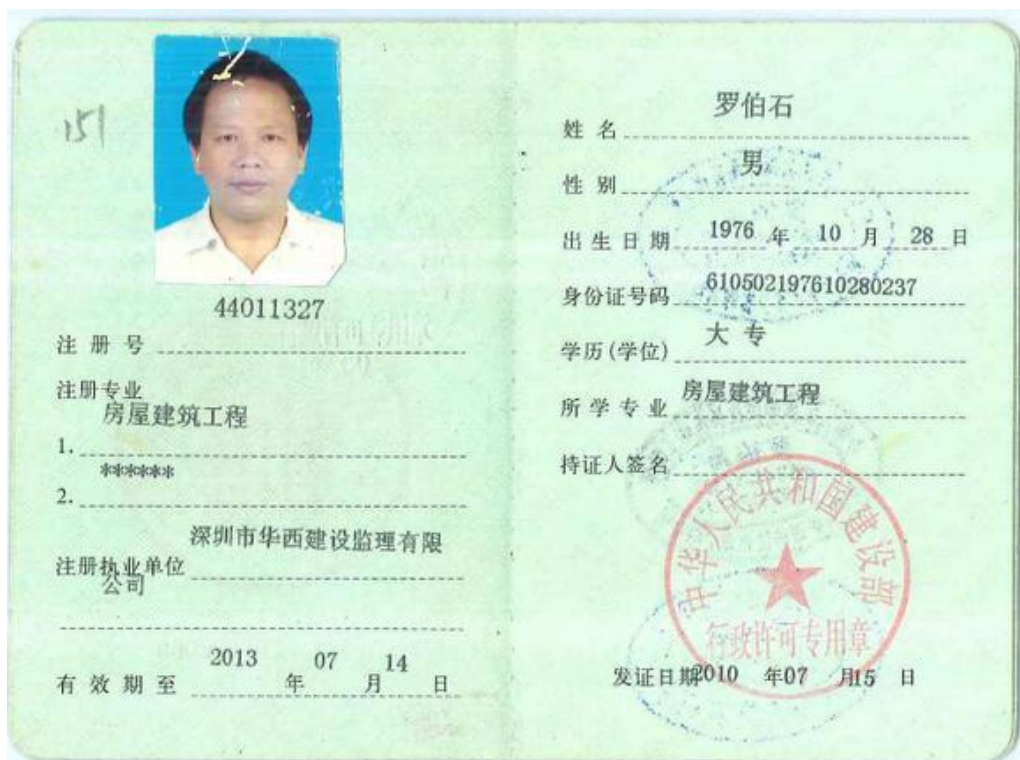 151
44011327
注 册 号
注册专业
房屋建筑工程
1.
******
2.
深圳市华西建设监理有限
注册执业单位
公司
2013 07 14
有 效 期 至 年 月 日
罗伯石
姓 名
男
性 别
出 生 日 期 1976 年 10 月 28 日
身份证号码 610502197610280237
学历(学位) 大 专
所 学 专 业 房屋建筑工程
持证人签名
中华人民共和国建设部
行政许可专用章
发证日期 2010 年 07 月 15 日